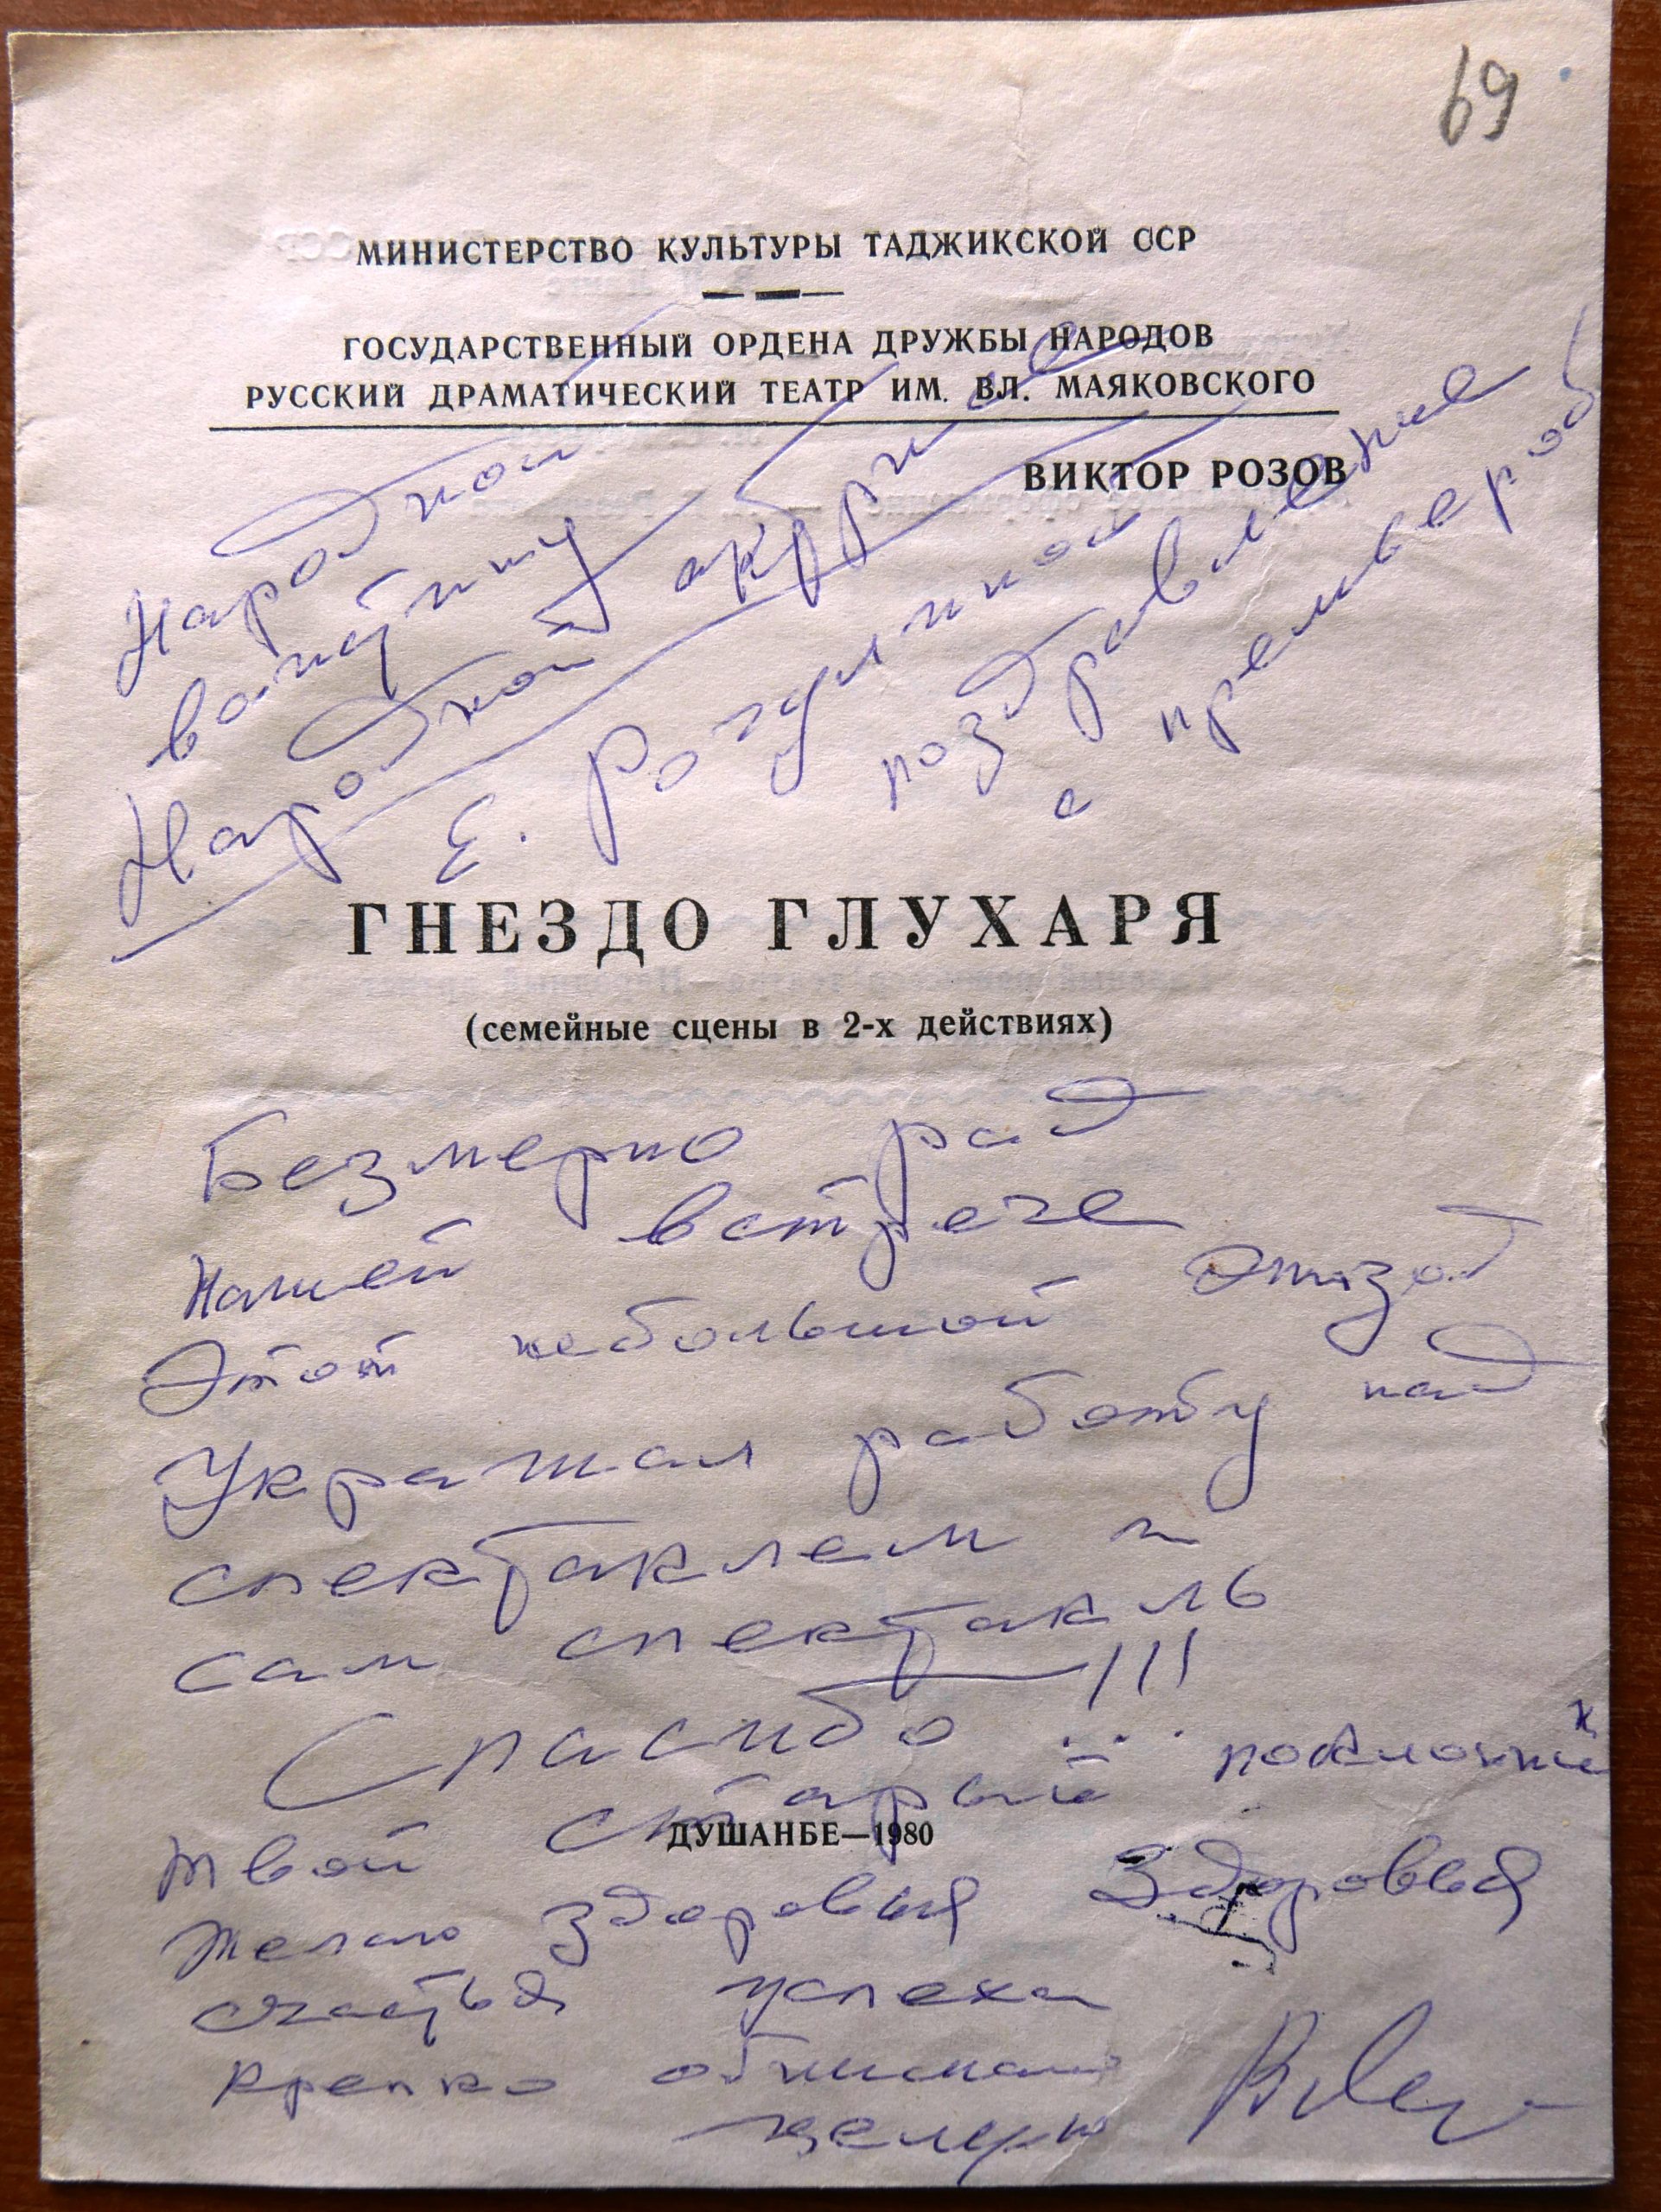 69
МИНИСТЕРСТВО КУЛЬТУРЫ ТАДЖИКСКОЙ ССР
ГОСУДАРСТВЕННЫЙ ОРДЕНА ДРУЖБЫ НАРОДОВ
РУССКИЙ ДРАМАТИЧЕСКИЙ ТЕАТР ИМ. ВЛ. МАЯКОВСКОГО
ВИКТОР РОЗОВ
Народной
Народной актрисе
Е.
поздравление
с премьерой
ГНЕЗДО ГЛУХАРЯ
(семейные сцены в 2-х действиях)
Безмерно рад
нашей встрече
Этот небольшой эпизод
Украшал работу над
спектаклем и
сам спектакль
Спасибо !!!
твой старый поклонник
ДУШАНБЕ—1980
Желаю здоровья здоровья
счастья успеха
крепко обнимаю
целую